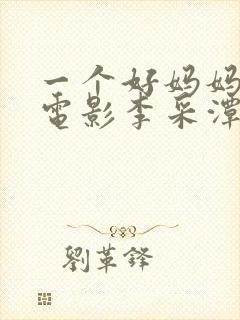 一个好妈妈
電影李采潭
劉革鐸